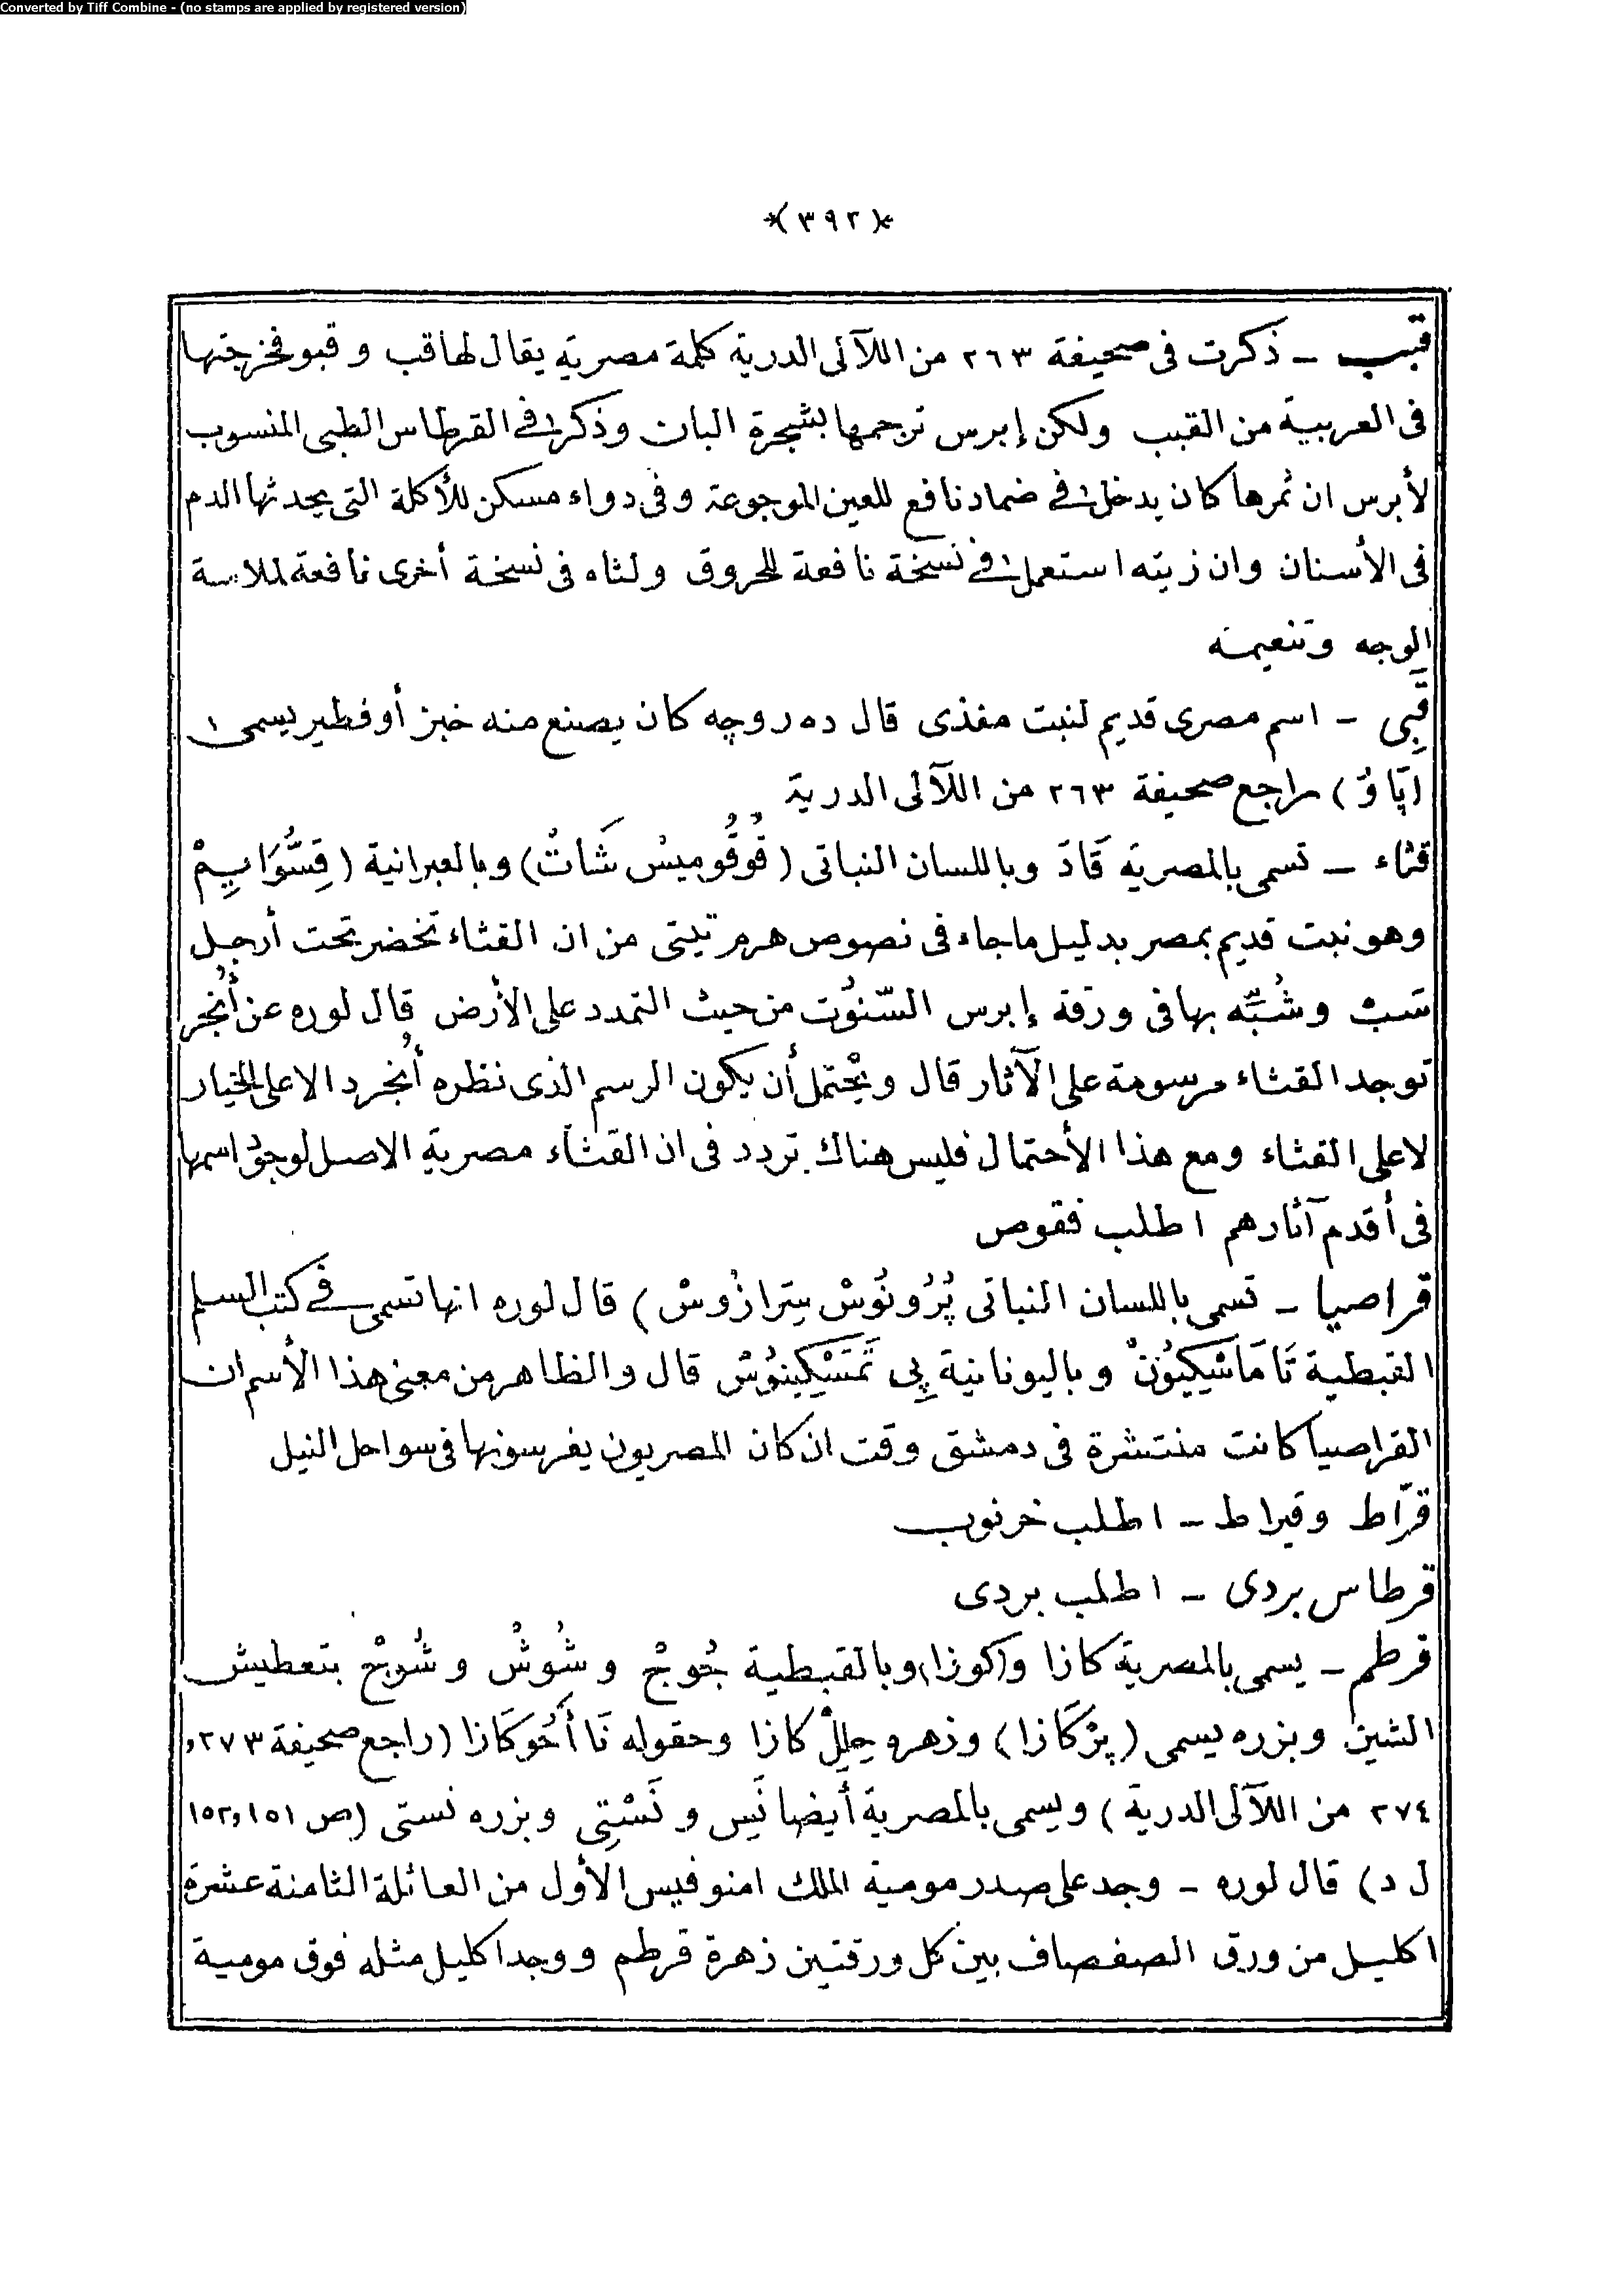 Converted by Tiff Combine - (no stamps are applied by registered version)
*(٣٩٢)*
قبب - ذكرت فى صحيفة ٢٦٣ من اللآلئ الدرية كلمة مصرية يقال لها قب وقبو فخرجتها
فى العربية من القبب ولكن إبرس ترجمها بشجرة البان وذكر فى القرطاس الطبى المنسوب
لأبرس ان ثمرها كان يدخل فى ضماد نافع للعين الموجوعة وفى دواء مسكن للأكلة التى يحدثها الدم
فى الأسنان وان زيته استعمل فى نسخة نافعة للحروق ولثاه فى نسخة أخرى نافعة لملاسة
الوجه وتنعيمه
قَبِى - اسم مصرى قديم لنبت مغذى قال ده روچه كان يصنع منه خبز أو فطير يسمى
(پَاوُ) راجع صحيفة ٢٦٣ من اللآلى الدرية
قثاء - تسمى بالمصرية قَادَ وباللسان النباتى (قُوقُوميسْ شَاتْ) وبالعبرانية (قِسُّوَابِيمْ
وهو نبت قديم بمصر بدليل ماجاء فى نصوص هرم تيتى من ان القثاء تخضر تحت أرجل
سَتْ وشُبِّه بها فى ورقة إبرس السّنوُت من حيث التمدد على الأرض قال لوره عن أُنْجر
توجد القثاء مرسومة على الآثار قال ويُحْتمل أن يكون الرسم الذى نظره أُنْجر دالا على الخيار
لا على القثاء ومع هذا الأحتمال فليس هناك تردد فى ان القثاء مصرية الاصل لوجود اسمها
فى أقدم آثارهم اطلب فقوص
قراصيا - تسمى باللسان النباتى پُرُونُوسْ سِترازُوسْ) قال لوره انها تسمى فى كتب السلم
القبطية تَامَاسْكِيُونْ وباليونانية پِى تَمَسْكِينُوسْ قال والظاهر من معنى هذا الأسم ان
القراصيا كانت منتشرة فى دمشق وقت ان كان المصريون يغرسونها فى سواحل النيل
قرّاط وقيراط - اطلب خرنوب
قرطاس بردى - اطلب بردى
قرطم - يسمى بالمصرية كازا و(كوزا) وبالقبطية جُوجْ وشُوشْ وشُوجْ بتعطيش
الشين وبزره يسمى (پِرْكَازا) وزهره حِلِلْ كازا وحقوله نَا أَخُوكَازا (راجع صحيفة ٢٧٣,
٢٧٤ من اللآلى الدرية) ويسمى بالمصرية أيضا نَسِ ونَسْتِى وبزره نستى (ص ١٥١,١٥٢
ل د) قال لوره - وجد على صدر مومية الملك امنوفيس الأول من العائلة الثامنة عشرة
اكليل من ورق الصفصاف بين كل ورقتين زهرة قرطم ووجد اكليل مثله فوق مومية